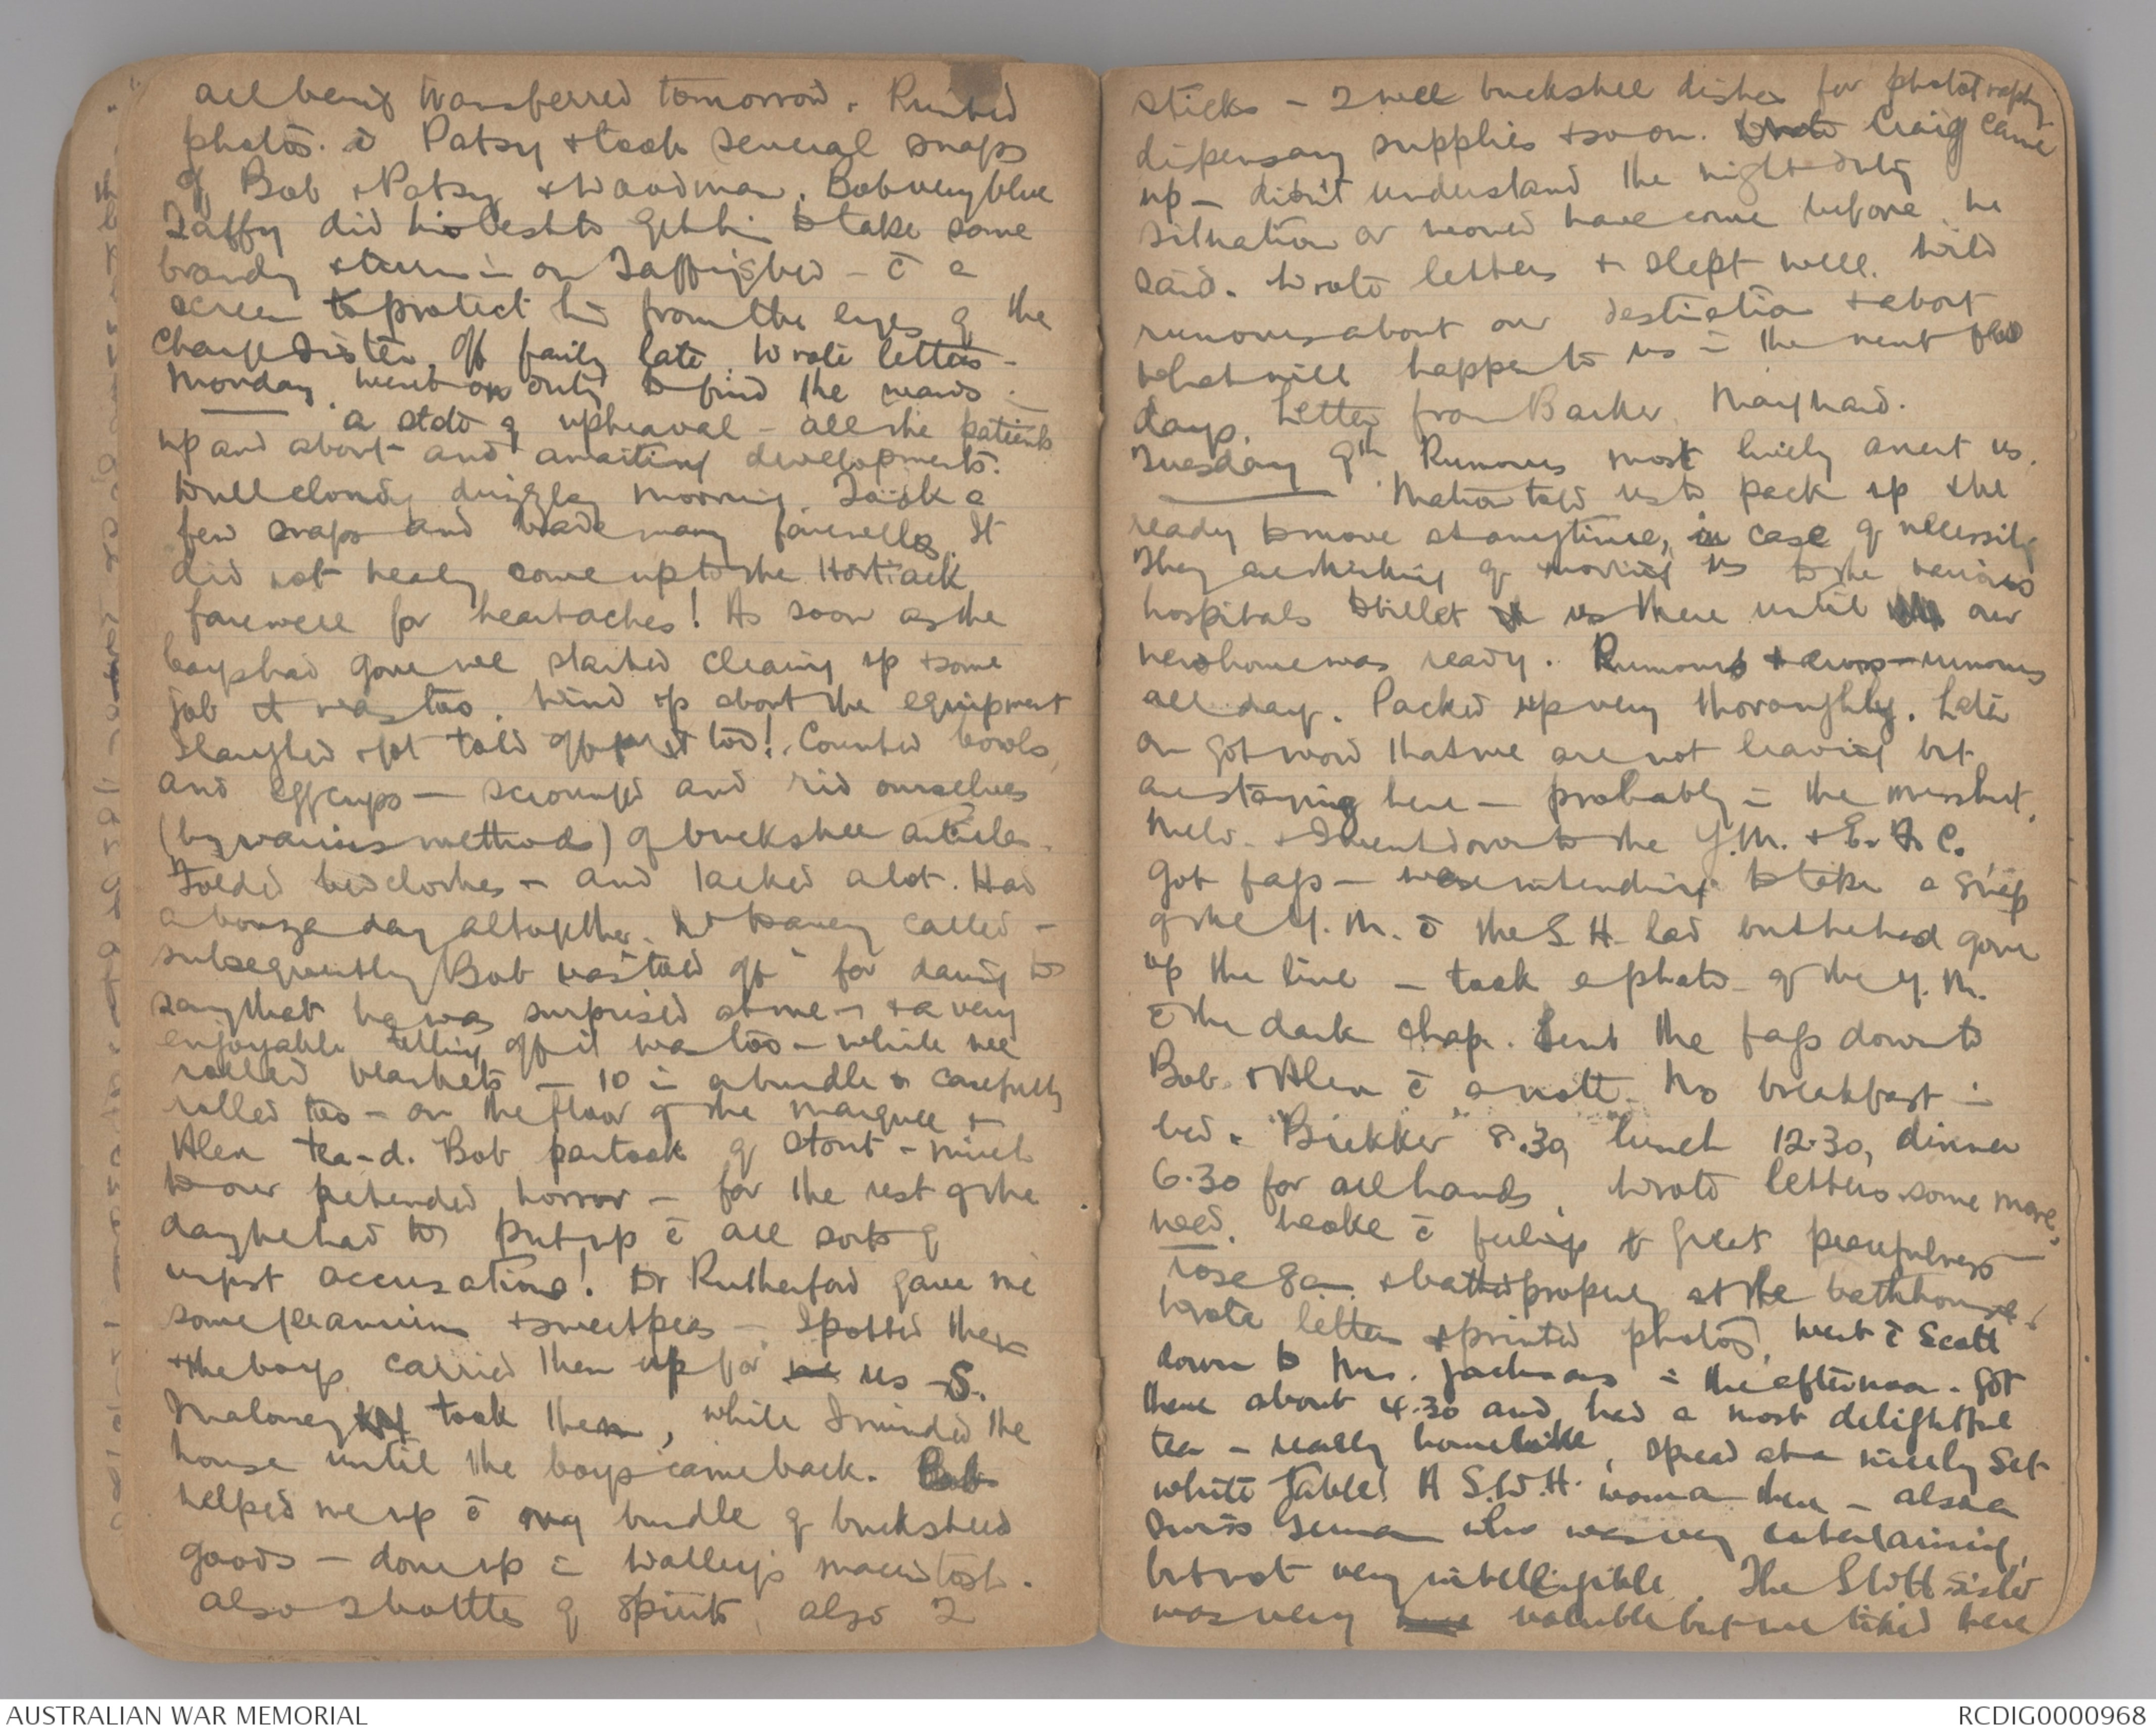 all being transferred tomorrow. Printed
photos. c̄ Patsy & took several snaps
of Bob & Patsy & Woodman. Bob very blue
Taffy did his best to get him to take some
brandy & turn in on Taffy's bed – c̄ a
screen to protect him from the eyes of the
Charge Sister. Off fairly late. Wrote letters –
Monday. Went on duty to find the wards in
a state of upheaval – all the patients
up and about – and awaiting developments.
Dull cloudy drizzley morning. Took a
few snaps and bade many farewells. It
did not nearly come up to the Hortiack
farewell for heartaches! As soon as the
boys had gone we started clearing up & some
job it was too. Wind up about the equipment
Laughed & got told off for it too! Counted bowls,
and egg cups – scrounged and rid ourselves
(by various methods) of buckshee articles.
Folded bedclothes – and lacked a lot. Had
a bonza day altogether. called –
subsequently Bob was "told off" for daring to
say that he was surprised at me – & a very
enjoyable telling off it was too – while we
rolled blankets – 10 in a bundle & carefully
rolled too – on the floor of the marquee &
Alex tea-d. Bob partook of stout – much
to our pretended horror – for the rest of the
day he had to put up c̄ all sorts of
unjust accusations! Dr Rutherford gave me
some geraniums & sweetpeas – I potted them
& the boys carried them up for me us – S.
Maloney took them, while I minded the
house until the boys came back. Bob
helped me up c̄ my bundle of bucksheed
goods – done up in Walley's macintosh.
also 2 bottles of spirits, also 2
sticks – 2 well buckshee dishes for photography
dispensary supplies & so on. Craig came
up – didn't understand the night duty
situation or would have come before he
said. Wrote letters & slept well. Wild
rumours about our destination & about
what will happen to us in the next few
days. Letter from Barker, Maynard.
Tuesday 9th Rumours most lively anent us.
Matron told us to pack up & be
ready to move at anytime, in case of necessity
They are thinking of moving us to the various
hospitals to billet us there until our
new home was ready. Rumours & cross-rumours
all day. Packed up very thoroughly. Later
on got word that we are not leaving but
are staying here – probably in the mess hut.
Melv. & I went down to the Y.M. & E.F.C.
Got fags – was intending to take a snap
of the Y.M. c̄ the S.H. lad but he had gone
up the line – took a photo of the Y.M.
c̄ the dark chap. Sent the fags down to
Bob & Alex c̄ a note. No breakfast in
bed. "Brekker" 8.30, "lunch" 12.30, dinner
6.30 for all hands. Wrote letters some more.
Wed. Woke c̄ feeling of great peacefulness –
rose 8 a.m. & bathed properly at the bathhouse!
Wrote letters & printed photos. Went c̄ Scott
down to Mrs. Jacksons in the afternoon. Got
there about 4.30 and had a most delightful
tea – really homelike, spread at a nicely set
white table! A S.W.H. woman there – also a
Swiss German who was very entertaining,
but not very intelligible. The Stott sister
was very voluble but we liked her
AUSTRALIAN WAR MEMORIAL
RCDIG0000968